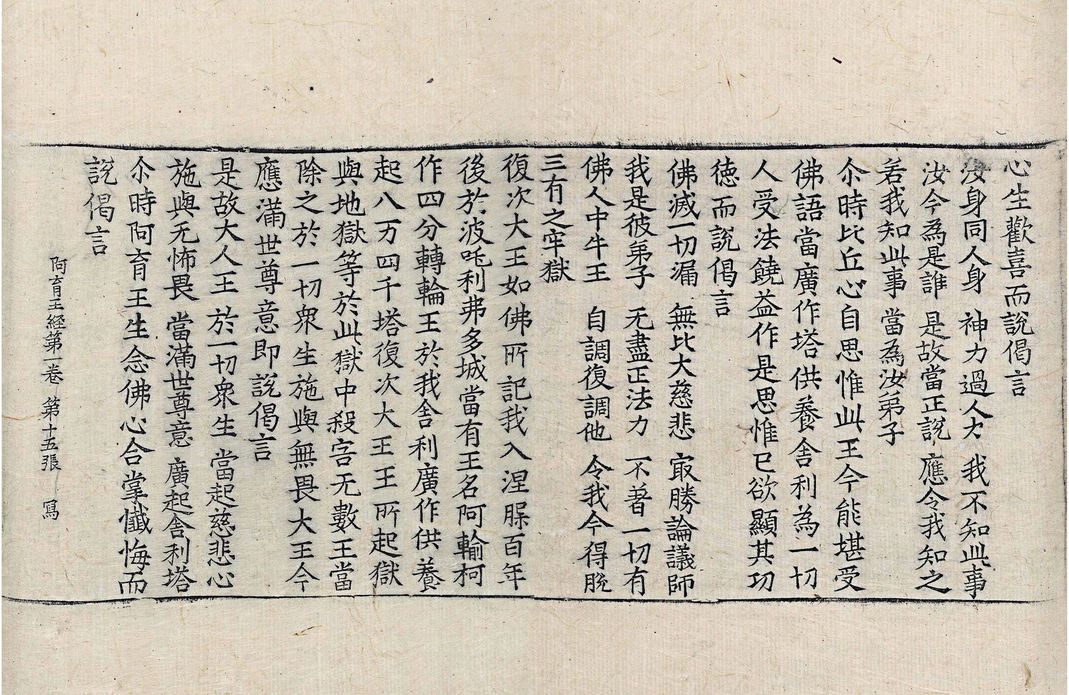 心生歡喜而說偈言
汝身同人身 神力過人大 我不知此事
汝今為是誰 是故當正說 應令我知之
若我知此事 當為汝弟子
尒時比丘心自思惟此王今能堪受
佛語當廣作塔供養舍利為一切
人受法饒益作是思惟已欲顯其功
德而說偈言
佛滅一切漏 無比大慈悲 㝡勝論議師
我是彼弟子 无盡正法力 不著一切有
佛人中牛王 自調復調他 令我今得脫
三有之牢獄
復次大王如佛所記我入涅槃百年
後於波吒利弗多城當有王名阿輸柯
作四分轉輪王於我舍利廣作供養
起八万四千塔復次大王王所起獄
與地獄等於此獄中殺害无數王當
除之於一切衆生施與無畏大王今
應滿世尊意即說偈言
是故大人王 於一切衆生 當起慈悲心
施與无怖畏 當滿世尊意 廣起舍利塔
尒時阿育王生念佛心合掌懺悔而
說偈言
阿育王経第一卷 第十五張 寫